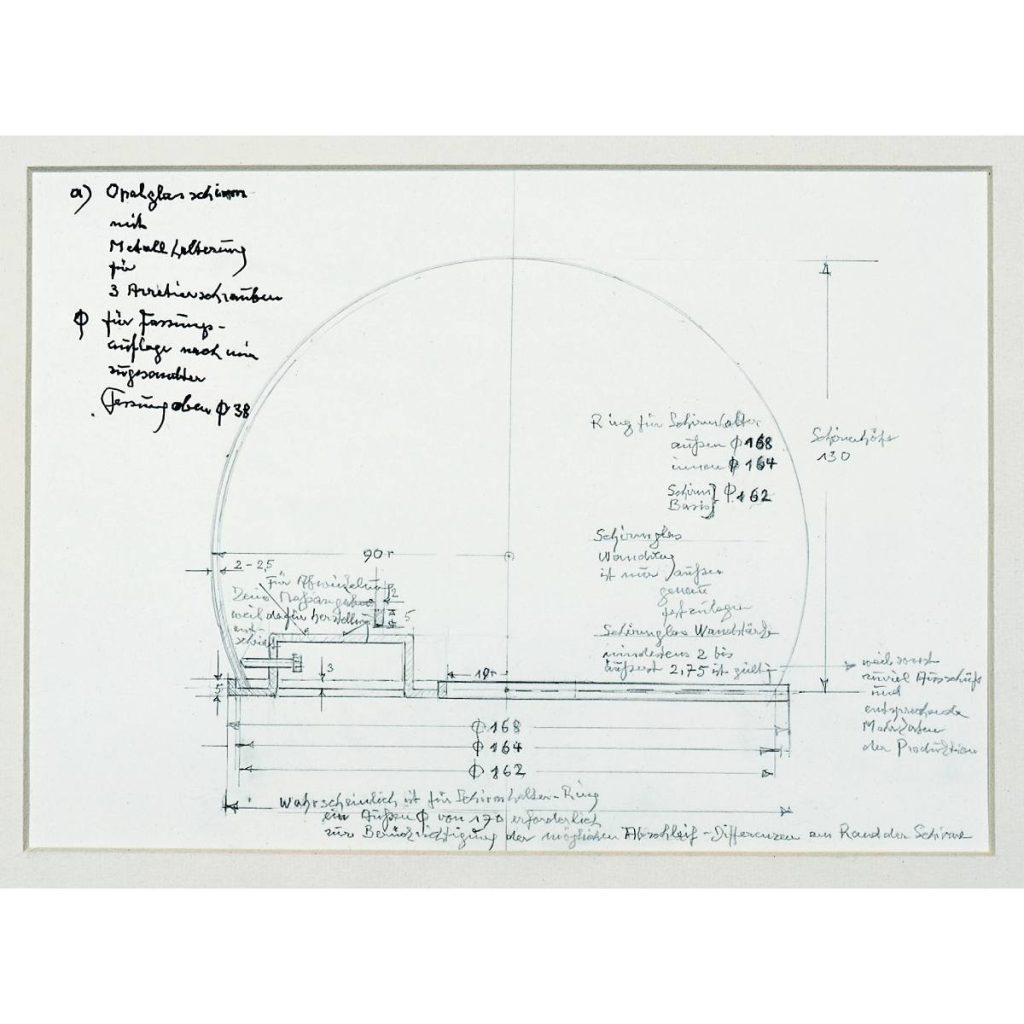 a) Opalglasschirm
mit
Metallhalterung
für
3 Arretierschrauben
ϕ für Fassungs-
auflage nach mir
zugesandter
Fassung oben ϕ 38
Ring für Schirmhalter
außen ϕ 168
innen ϕ 164
Schirm
Basis} ϕ 162
Schirmhöhe
130
Schirmglas
Wandung
ist nur außen
genau
festzulegen
Schirmglas Wandstärke
mindestens 2 bis
äußerst 2,75 ist gültig
weil sonst
zuviel Ausschuß
und
entsprechende
Mehrkosten
der Produktion
90 r
2 - 2,5
Für Abwinkelung
keine Maßangabe
weil dafür Hersteller
ent-
scheidet
2
5
3
5
19 r
ϕ 168
ϕ 164
ϕ 162
Wahrscheinlich ist für Schirmhalter-Ring
ein Außen ϕ von 170 erforderlich
zur Berücksichtigung der möglichen Abschleif-Differenzen am Rand der Schirme